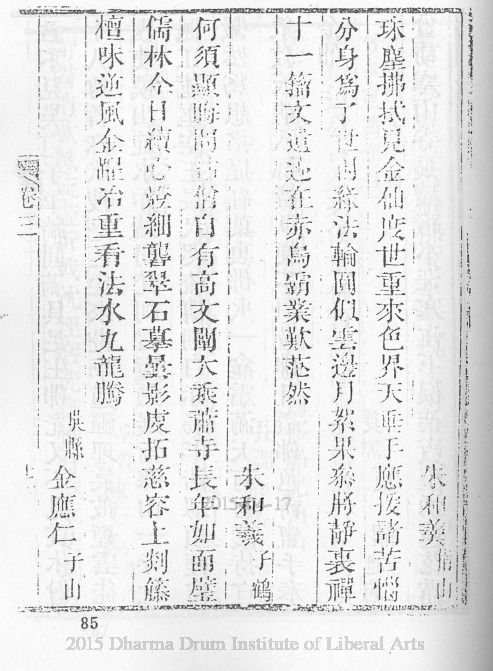 朱和羲
珠塵拂拭見金仙度世重來色界天垂手應援諸苦惱
分身爲了世間緣法輪圓似雲邊月絮果參將靜裏禪
十一籀文遺迹在赤烏霸業歎茫然
朱和羲子鶴
何須顯晦問 僧自有高文闡大乘蕭寺長年如面壁
儒林今日續心燈細礱翠石摹曇影虔拓慈容上剡藤
檀味逆風金躍冶重看法水九龍騰
吳縣 企應仁子山
卷三
85
2015 Dharma Drum Institute of Liberal Arts